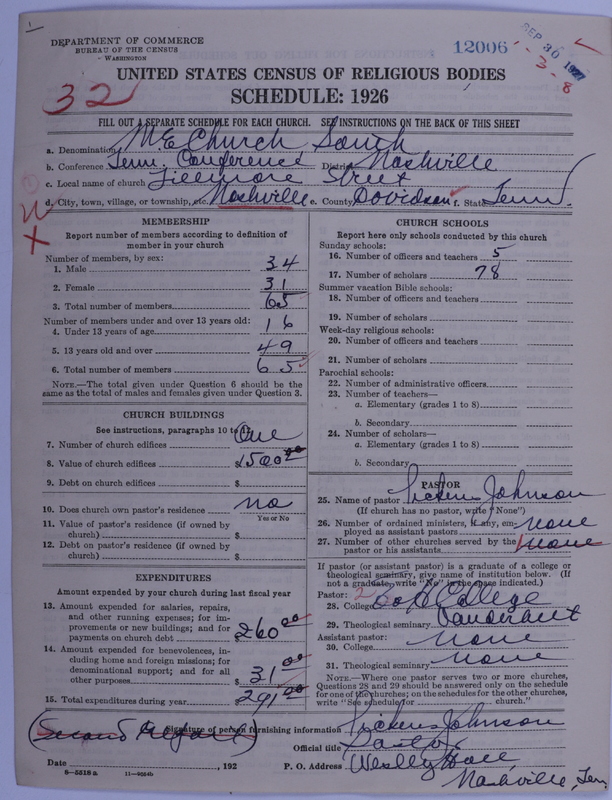 DEPARTMENT OF COMMERCE
BUREAU OF THE CENSUS
WASHINGTON
12006
SEP 30 1927
-3-8
UNITED STATES CENSUS OF RELIGIOUS BODIES
SCHEDULE: 1926
32
FILL OUT A SEPARATE SCHEDULE FOR EACH CHURCH. SEE INSTRUCTIONS ON THE BACK OF THIS SHEET
a. Denomination M E Church South
b. Conference Tenn. Conference District Nashville
c. Local name of church Fillmore Street
d. City, town, village, or township, etc. Nashville e. County Davidson f. State Tenn
X
MEMBERSHIP
Report number of members according to definition of
member in your church
Number of members, by sex:
1. Male 34
2. Female 31
3. Total number of members 65
Number of members under and over 13 years old:
4. Under 13 years of age 16
5. 13 years old and over 49
6. Total number of members 65
NOTE.—The total given under Question 6 should be the
same as the total of males and females given under Question 3.
CHURCH BUILDINGS
See instructions, paragraphs 10 to 12
7. Number of church edifices One
8. Value of church edifices $1500.00
9. Debt on church edifices $
10. Does church own pastor's residence no
Yes or No
11. Value of pastor's residence (if owned by
church) $
12. Debt on pastor's residence (if owned by
church) $
EXPENDITURES
Amount expended by your church during last fiscal year
13. Amount expended for salaries, repairs,
and other running expenses; for im-
provements or new buildings; and for
payments on church debt $260.00
14. Amount expended for benevolences, in-
cluding home and foreign missions; for
denominational support; and for all
other purposes $31.00
15. Total expenditures during year $291.00
CHURCH SCHOOLS
Report here only schools conducted by this church
Sunday schools:
16. Number of officers and teachers 5
17. Number of scholars 78
Summer vacation Bible schools:
18. Number of officers and teachers
19. Number of scholars
Week-day religious schools:
20. Number of officers and teachers
21. Number of scholars
Parochial schools:
22. Number of administrative officers
23. Number of teachers—
a. Elementary (grades 1 to 8)
b. Secondary
24. Number of scholars—
a. Elementary (grades 1 to 8)
b. Secondary
PASTOR
25. Name of pastor Pickens Johnson
(If church has no pastor, write "None")
26. Number of ordained ministers, if any, em-
ployed as assistant pastors none
27. Number of other churches served by the
pastor or his assistants none
If pastor (or assistant pastor) is a graduate of a college or
theological seminary, give name of institution below. (If
not a graduate, write "No" in the space indicated.)
Pastor:
28. College College
29. Theological seminary Vanderbilt
Assistant pastor:
30. College none
31. Theological seminary none
NOTE.—Where one pastor serves two or more churches,
Questions 28 and 29 should be answered only on the schedule
for one of the churches; on the schedules for the other churches,
write "See schedule for church."
(Second Report)
Signature of person furnishing information Pickens Johnson
Official title Pastor
Date , 192 P. O. Address Wesley Hall,
Nashville, Ten
6-5518a 11-9554b